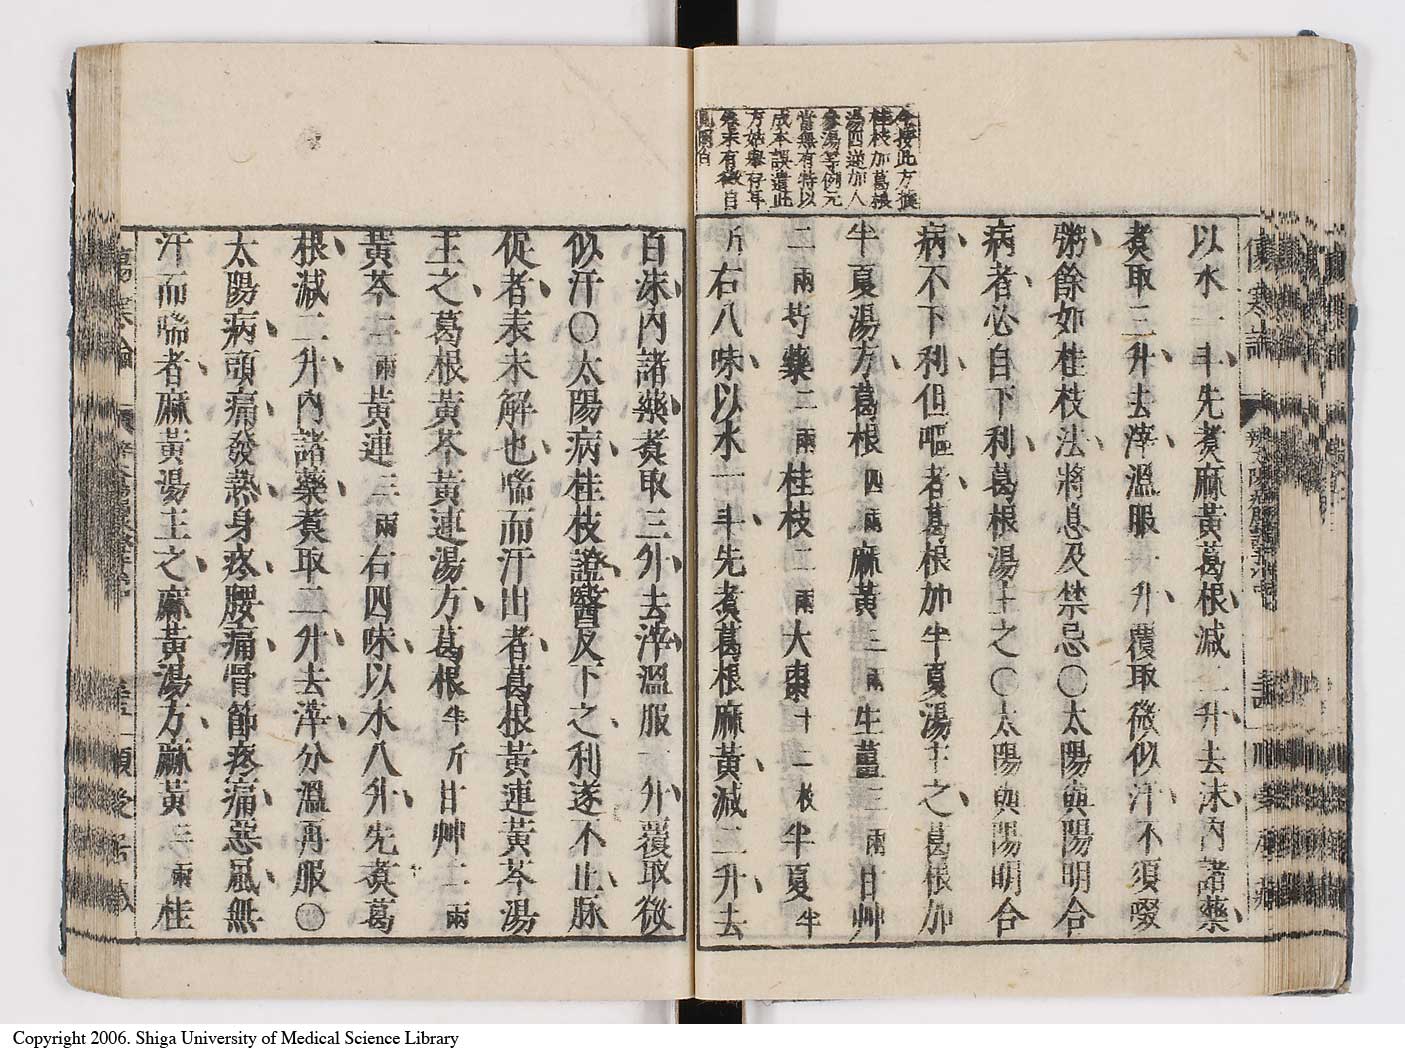 今按此方據
桂枝加葛根
湯四逆加人
參湯等例元
當無有特以
成本誤遺此
方姑舉存耳
卷末有徵自
以水一斗先煮麻黃葛根減二升去沫內諸藥
煮取三升去滓溫服一升覆取微似汗不須啜
粥餘如桂枝法將息及禁忌〇太陽與陽明合
病者必自下利葛根湯主之〇太陽與陽明合
病不下利但嘔者葛根加半夏湯主之葛根加
半夏湯方葛根四兩麻黃三兩生薑三兩甘艸
二兩芍藥二兩桂枝二兩大棗十二枚半夏半
斤右八味以水一斗先煮葛根麻黃減二升去
白沫內諸藥煮取三升去滓溫服一升覆取微
似汗〇太陽病桂枝證醫反下之利遂不止脉
促者表未解也喘而汗出者葛根黃連黃芩湯
主之葛根黃芩黃連湯方葛根半斤甘艸二兩
黃芩二兩黃連三兩右四味以水八升先煮葛
根減二升內諸藥煮取二升去滓分溫再服〇
太陽病頭痛發熱身疼腰痛骨節疼痛惡風無
汗而喘者麻黃湯主之麻黃湯方麻黃三兩桂
Copyright 2006. Shiga University of Medical Science Library